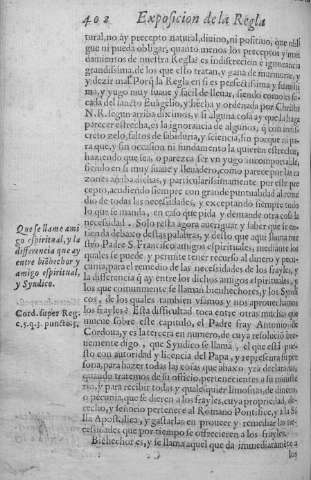 402 Exposicion de la Regla
tural, no ay precepto natural, diuino, ni positiuo, que obli
gue ni pueda obligar, quanto menos los preceptos y man
damientos de nuestra Regla: es indiscrecion è ignorancia
grandissima, de los que esso tratan, y gana de murmurar, y
y dezir mal. Porq̃ la Regla en si es perfectissima y santissi
ma, y yugo muy suaue y facil de lleuar, siendo como es sa
cada del sancto Euãgelio, y hecha y ordenada por Christo
N.R. segun arriba diximos, y si alguna cosa ay que la haga
parecer estrecha, es la ignorancia de algunos, q̃ con indis
creto zelo, faltos de sabiduria, y sciencia, sin porque ni pa
ra que, y sin occasion ni fundamento la quieren estrechar,
haziendo que sea, o parezca ser vn yugo incomportable,
siendo en si muy suaue y lleuadero, como parece por las ra
zones arriba dichas, y particularissimamente por este pre
cepto, acudiendo siempre con grande puntualidad al reme
dio de todas las necessidades, y exceptando siempre todo
lo que se manda, en caso que pida y demande otra cosa la
necessidad. Solo resta agora aueriguar y saber que se en
tienda debaxo destas palabras, y desto que aqui llama nue
stro Padre S. Francisco amigos espirituales, mediante los
quales se puede y permite tener recurso al dinero y pecu
cunia, para el remedio de las necessidades de los frayles, y
la differencia q̃ ay entre los dichos amigos espirituales, y
los que comunmente se llaman bienhechores, y los Syndi
cos, de los quales tambien vsamos y nos aprouechamos
los frayles? Esta difficultad toca entre otras muchas que
mueue sobre este capitulo, el Padre fray Antonio de
Cordoua, y es la tercera en numero, de cuya resolució bre
uemente digo, que Syndico se llama, el que està pue
sto con autoridad y licencia del Papa, y representa su per
sona, para hazer todas las cosas que abaxo se declararan
quando tratemos de su officio, pertenecientes a su ministe
rio, y para recibir todas y qualesquier limosnas, de dinero
o pecunia, que se dieren a los frayles, cuya propriedad, de-
recho, y señorio pertenece al Romano Pontifice, y a la Si
lla Apostolica, y gastarlas en proueer y remediar las ne-
cessidades que por tiempo se offrecieren a los frayles.
Biẽhechor es, y se llama aquel que da immediatamẽte a
los
Que se llame ami
go espiritual, y la
differencia que ay
entre biẽhechor y
amigo espiritual,
y Syndico.
Cord. super Reg.
c.5.q.3. puncto.5.